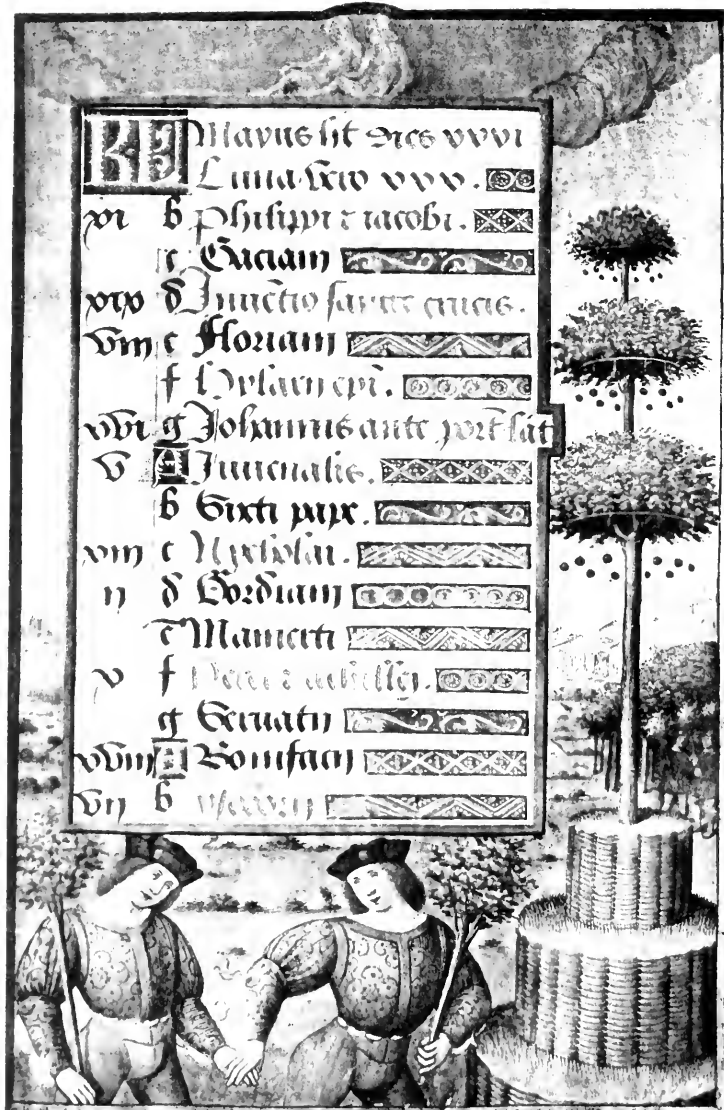 KL Mayus hit dies xxxi
Luna vero xxx.
xi b Philippi z iacobi.
c Gaciani
xix d Inuētio sancte crucis.
viii e Floriani
f
xvi g Johannis ante port lat
v A Iuuenalis.
b Sixti pape.
xiii c Nycholai.
ii d Gordiani
e Mamerti
x f
g Seruatii
xviii A Bonifacii
vii b